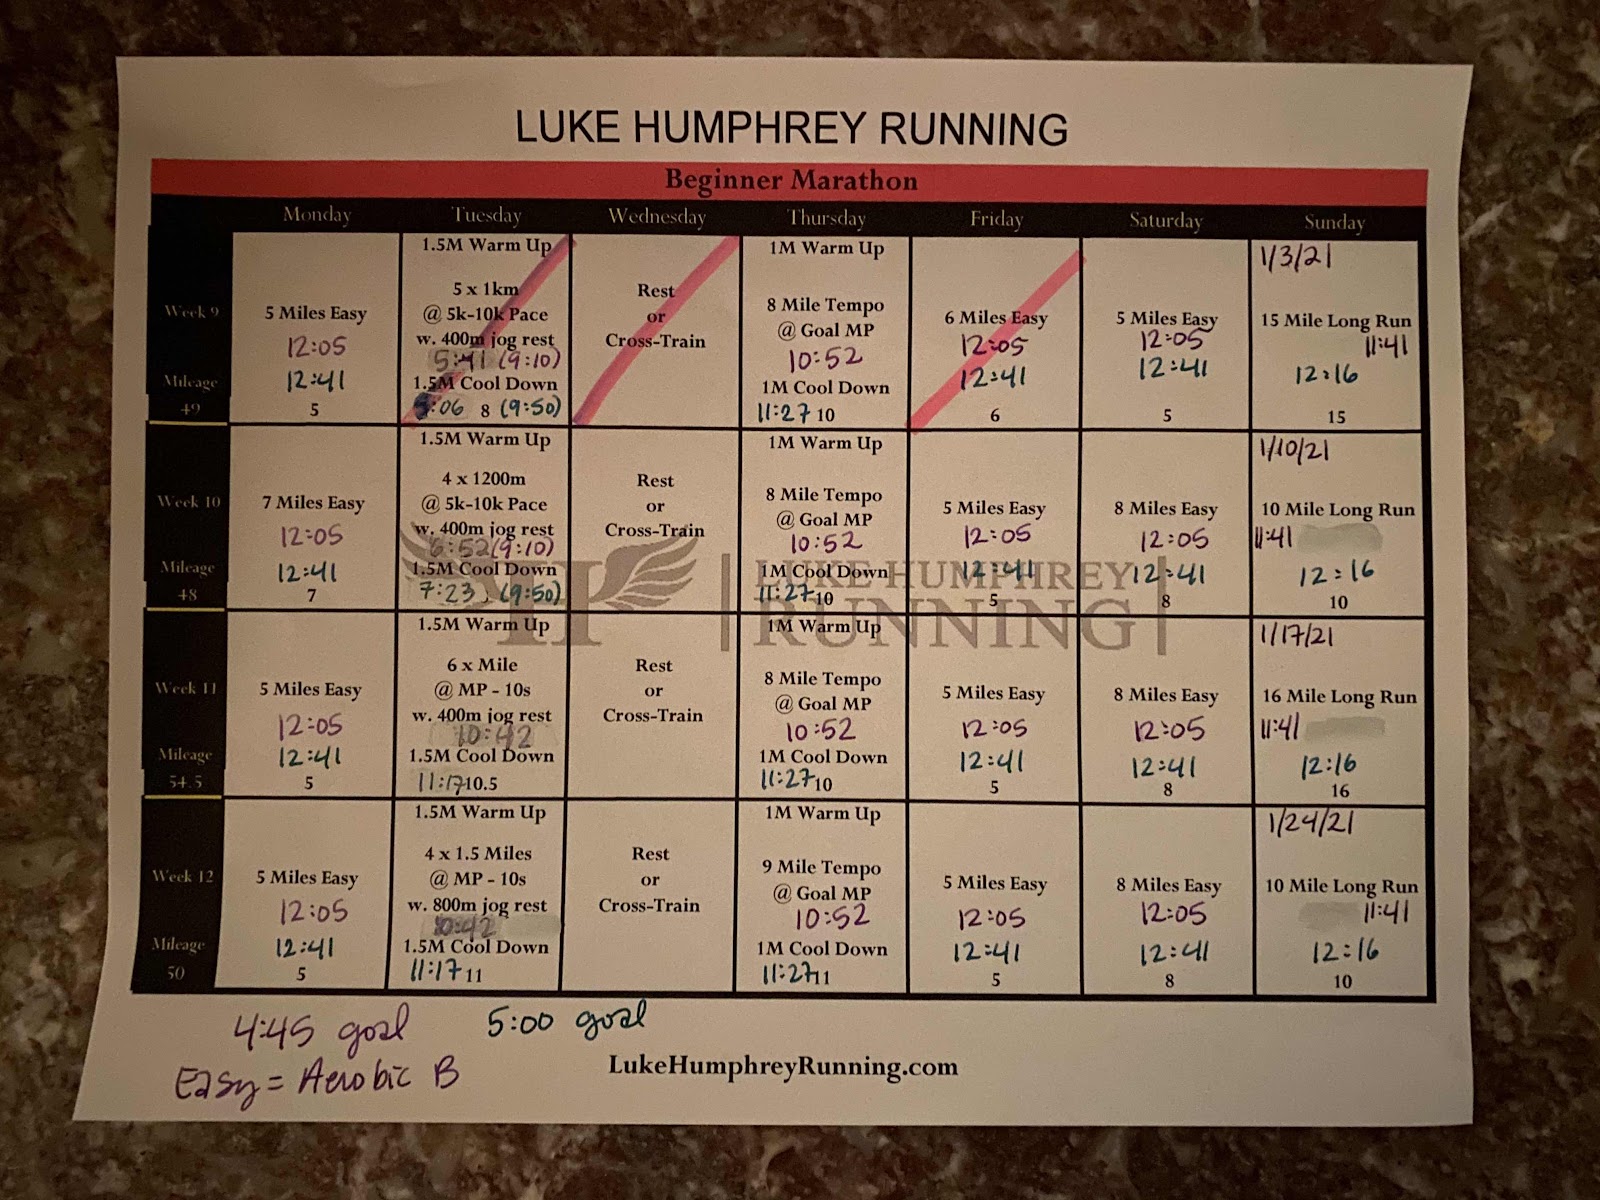 LUKE HUMPHREY RUNNING
Beginner Marathon
Monday Tuesday Wednesday Thursday Friday Saturday Sunday
Week 9
Mileage
49
5 Miles Easy
12:05
12:41
5
1.5M Warm Up
5 x 1km
@ 5k-10k Pace
w. 400m jog rest
5:41 (9:10)
1.5M Cool Down
:06 8 (9:50)
Rest
or
Cross-Train
1M Warm Up
8 Mile Tempo
@ Goal MP
10:52
1M Cool Down
11:27 10
6 Miles Easy
12:05
12:41
6
5 Miles Easy
12:05
12:41
5
1/3/21
15 Mile Long Run
11:41
12:16
15
Week 10
Mileage
48
7 Miles Easy
12:05
12:41
7
1.5M Warm Up
4 x 1200m
@ 5k-10k Pace
w. 400m jog rest
6:52 (9:10)
1.5M Cool Down
7:23 (9:50)
Rest
or
Cross-Train
1M Warm Up
8 Mile Tempo
@ Goal MP
10:52
1M Cool Down
11:27 10
5 Miles Easy
12:05
12:41
5
8 Miles Easy
12:05
12:41
8
1/10/21
10 Mile Long Run
11:41
12:16
10
LUKE HUMPHREY
RUNNING
Week 11
Mileage
54.5
5 Miles Easy
12:05
12:41
5
1.5M Warm Up
6 x Mile
@ MP - 10s
w. 400m jog rest
10:42
1.5M Cool Down
11:17 10.5
Rest
or
Cross-Train
1M Warm Up
8 Mile Tempo
@ Goal MP
10:52
1M Cool Down
11:27 10
5 Miles Easy
12:05
12:41
5
8 Miles Easy
12:05
12:41
8
1/17/21
16 Mile Long Run
11:41
12:16
16
Week 12
Mileage
50
5 Miles Easy
12:05
12:41
5
1.5M Warm Up
4 x 1.5 Miles
@ MP - 10s
w. 800m jog rest
10:42
1.5M Cool Down
11:17 11
Rest
or
Cross-Train
1M Warm Up
9 Mile Tempo
@ Goal MP
10:52
1M Cool Down
11:27 11
5 Miles Easy
12:05
12:41
5
8 Miles Easy
12:05
12:41
8
1/24/21
10 Mile Long Run
11:41
12:16
10
4:45 goal 5:00 goal
Easy = Aerobic B
LukeHumphreyRunning.com